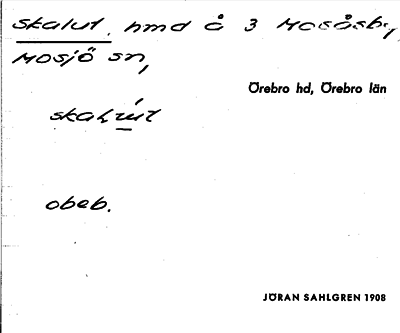 skalut, hmd å 3 Mosåsby,
Mosjö sn,
Örebro hd, Örebro län
obeb.
JÖRAN SAHLGREN 1908